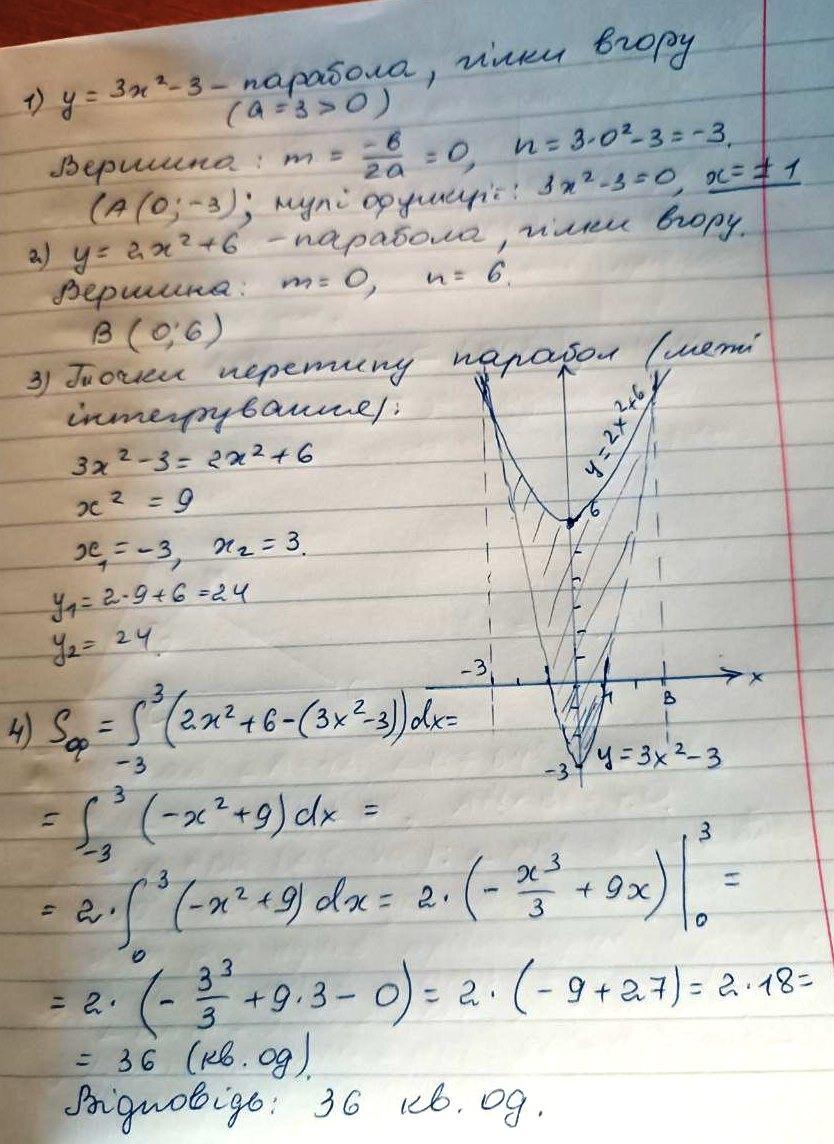 1) y = 3x² - 3 - парабола, гілки вгору
(a = 3 > 0)
Вершина: m = -b/2a = 0, n = 3·0² - 3 = -3.
(A (0; -3); нулі функції: 3x² - 3 = 0, x = ± 1
2) y = 2x² + 6 - парабола, гілки вгору.
Вершина: m = 0, n = 6.
B (0; 6)
3) Точки перетину парабол (межі
інтегрування):
3x² - 3 = 2x² + 6
x² = 9
x₁ = -3, x₂ = 3.
y₁ = 2·9 + 6 = 24
y₂ = 24.
y = 2x²+6
6
-3
1
3
x
-3
y = 3x² - 3
4) Sф = ∫₋₃³ (2x² + 6 - (3x² - 3)) dx =
= ∫₋₃³ (-x² + 9) dx =
= 2·∫₀³ (-x² + 9) dx = 2·(- x³/3 + 9x) |₀³ =
= 2·(- 3³/3 + 9·3 - 0) = 2·(-9 + 27) = 2·18 =
= 36 (кв. од).
Відповідь: 36 кв. од.